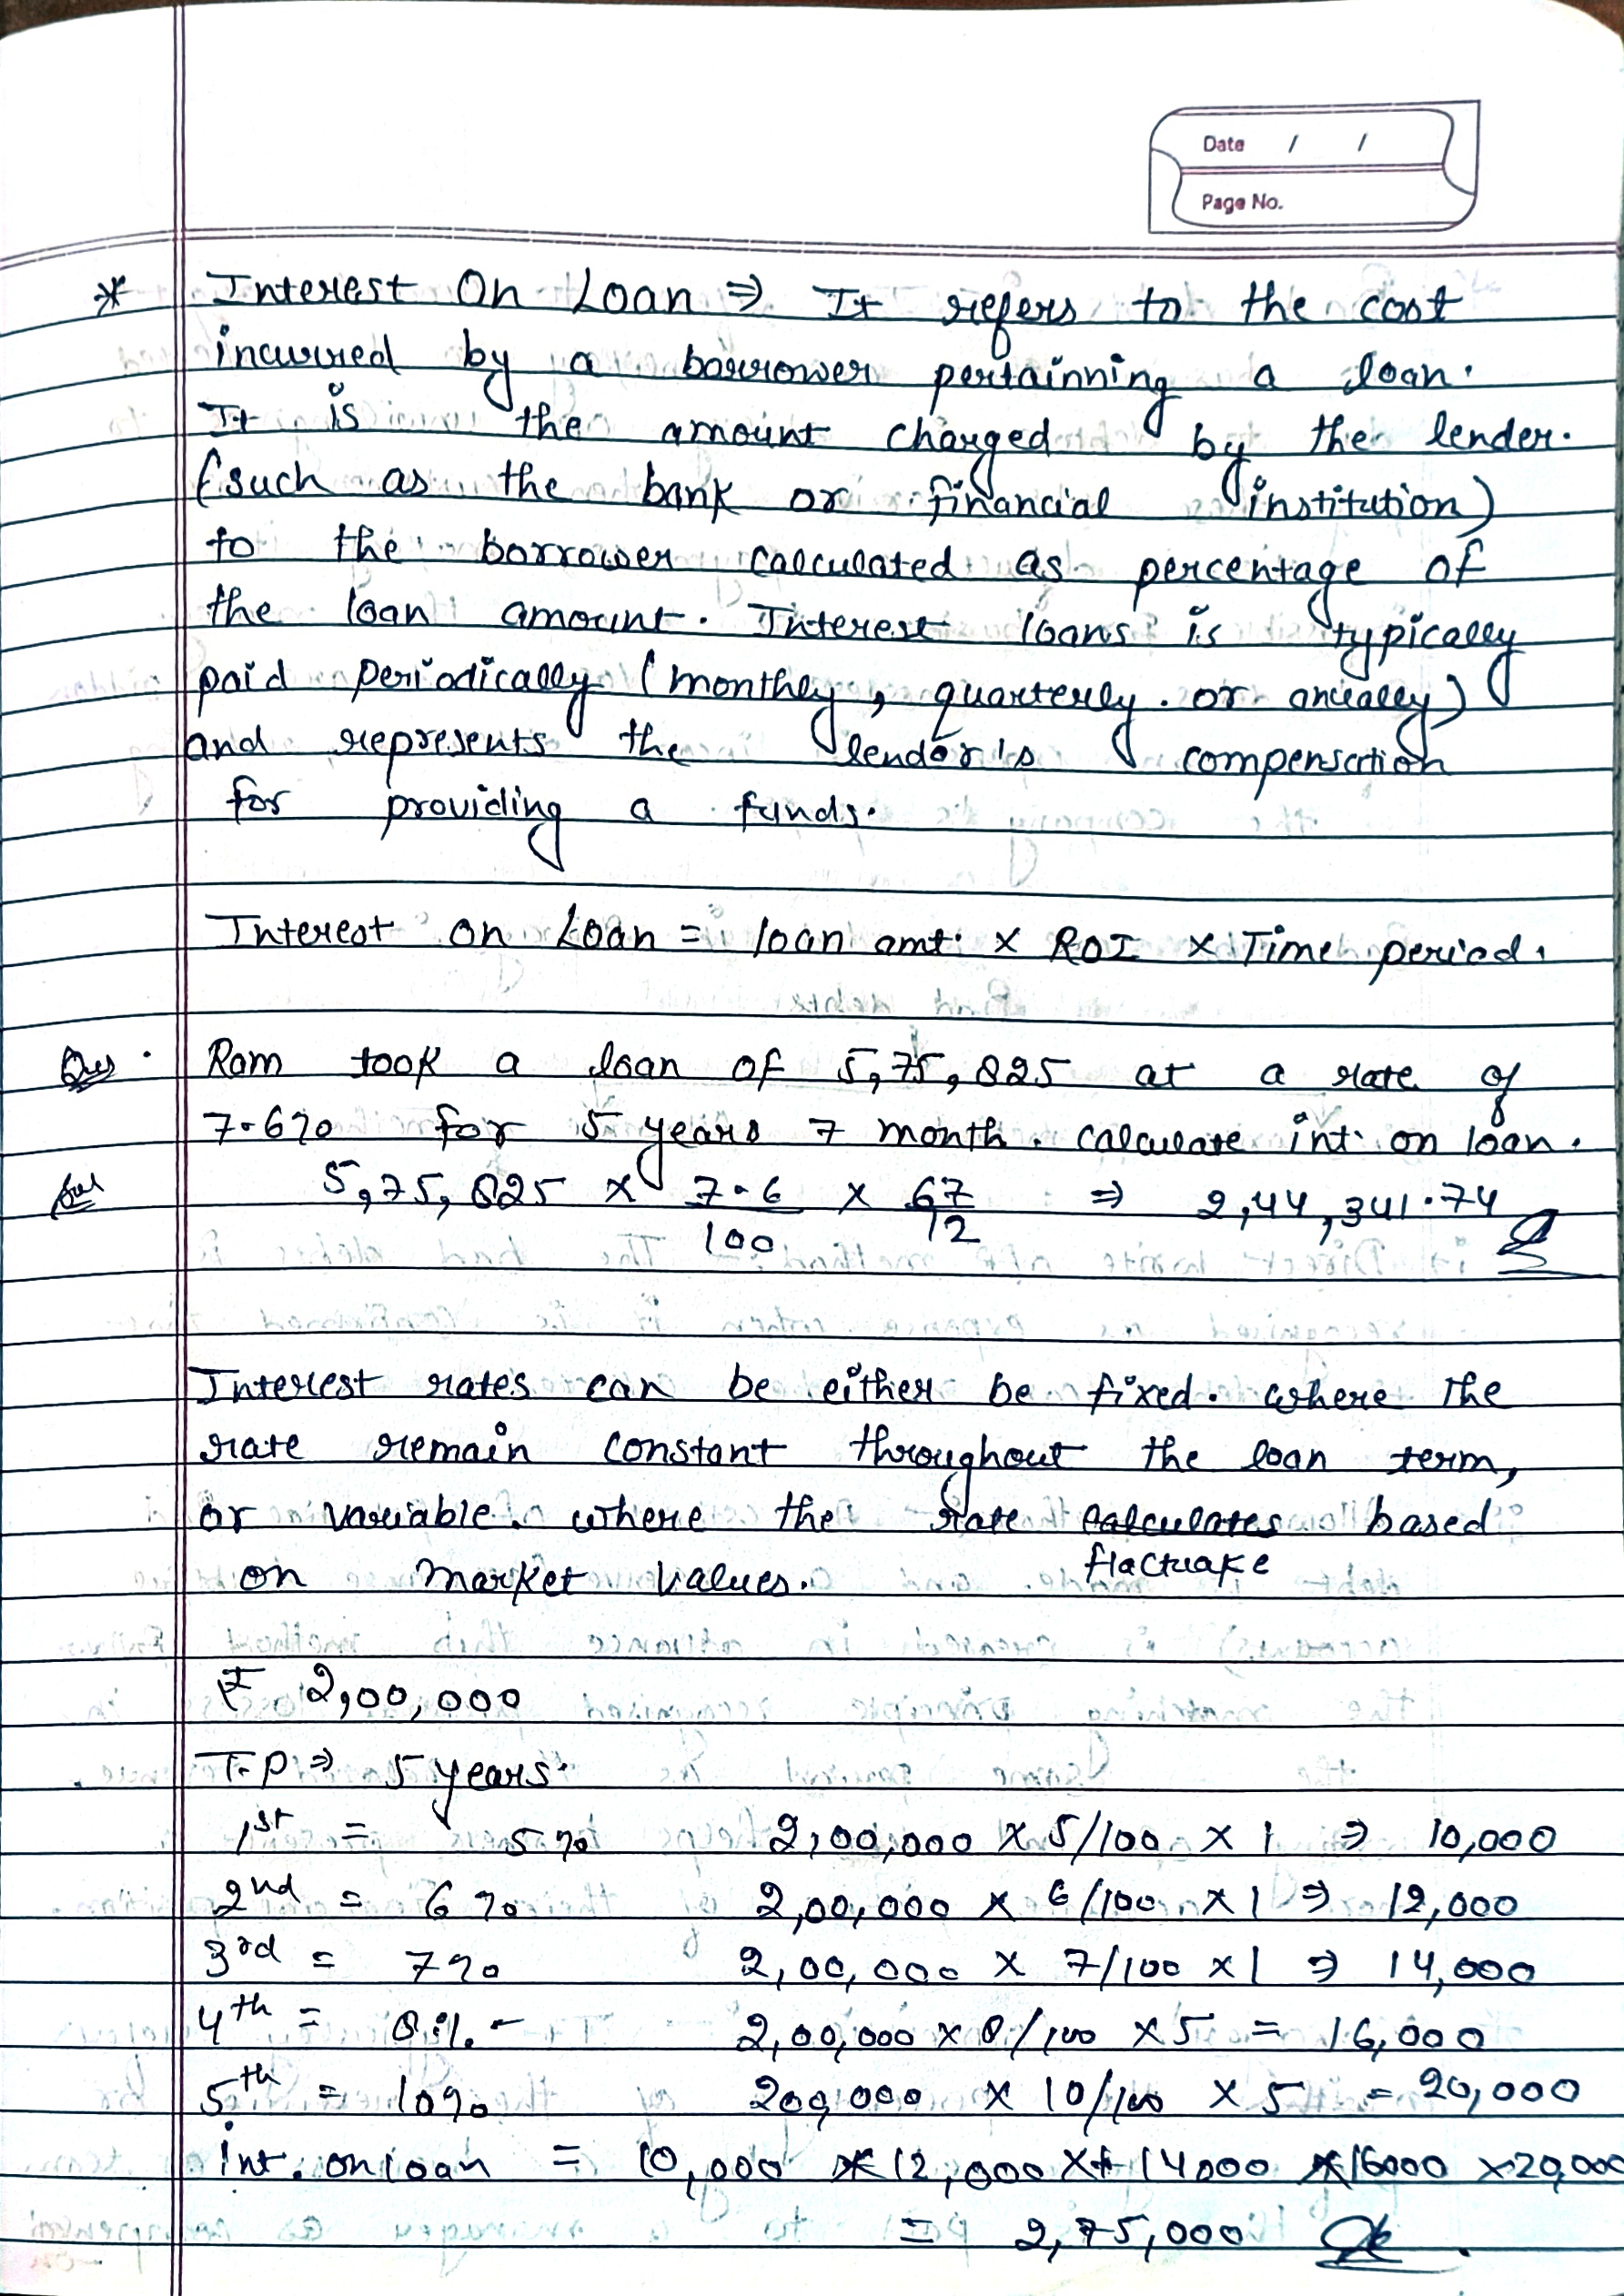 Date / /
Page No.
* Interest On Loan ⇒ It refers to the cost
incurred by a borrower pertainning a loan.
It is the amount charged by the lender.
(such as the bank or financial institution)
to the borrower calculated as percentage of
the loan amount. Interest loans is typically
paid periodically (monthly, quarterly. or anually)
and represents the lender's compensation
for providing a funds.
Interest on Loan = loan amt. x ROI x Time period.
Que. Ram took a loan of 5,75,825 at a rate of
7.6% for 5 years 7 month. calculate int. on loan.
Sol 5,75,825 x 7.6/100 x 67/12 ⇒ 2,44,341.74
Interest rates can be either be fixed. where the
rate remain constant throughout the loan term,
or variable. where the rate calculates based
flactuake
on market values.
₹ 2,00,000
T.P ⇒ 5 years.
1st = 5% 2,00,000 x 5/100 x 1 ⇒ 10,000
2nd = 6% 2,00,000 x 6/100 x 1 ⇒ 12,000
3rd = 7% 2,00,000 x 7/100 x 1 ⇒ 14,000
4th = 8%. - 2,00,000 x 8/100 x 5 = 16,000
5th = 10% 200,000 x 10/100 x 5 = 20,000
int. on loan = 10,000 x 12,000 x + 14000 x 16000 x 20,000
= 2,75,000